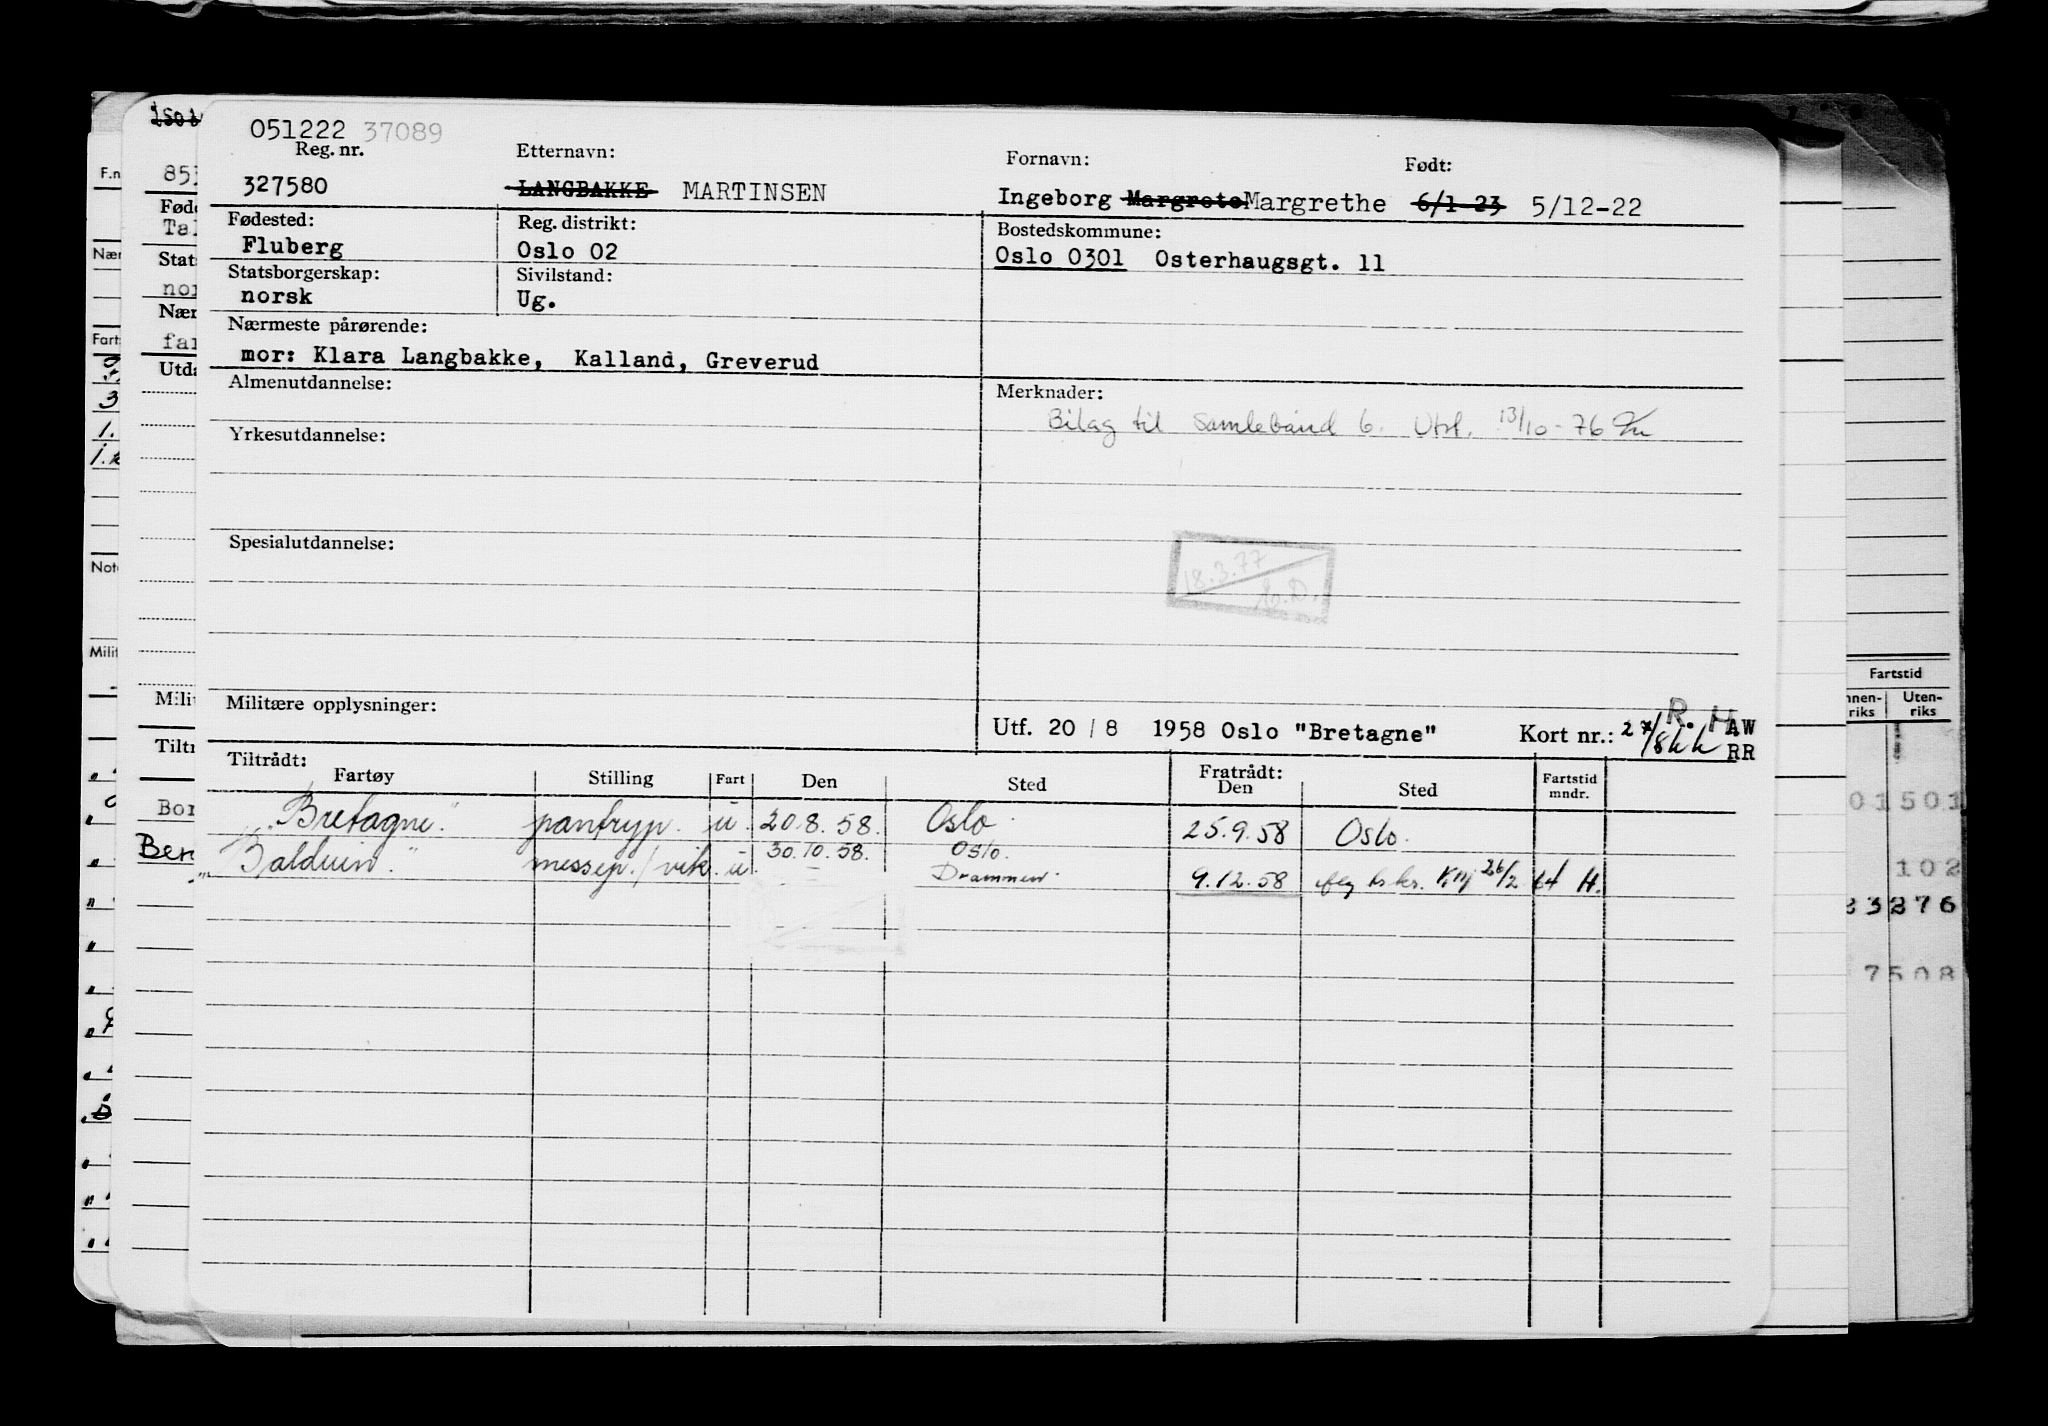 051222 37089
Reg. nr. Etternavn: Fornavn: Født:
327580 LANGBAKKE MARTINSEN Ingeborg Margrete Margrethe 6/1-23 5/12-22
Fødested: Reg. distrikt: Bostedskommune:
Fluberg Oslo 02 Oslo 0301 Osterhaugsgt. 11
Statsborgerskap: Sivilstand:
norsk Ug.
Nærmeste pårørende:
mor: Klara Langbakke, Kalland, Greverud
Almenutdannelse: Merknader:
Bilag til Samlebånd 6. Utst. 13/10-76
Yrkesutdannelse:
Spesialutdannelse:
18.3.77
E.D.
Militære opplysninger:
Utf. 20 / 8 1958 Oslo "Bretagne" Kort nr.: R. H AW
RR
Tiltrådt: Fratrådt:
Fartøy Stilling Fart Den Sted Den Sted Fartstid mndr.
"Bretagne" pantryp. u. 20.8.58. Oslo 25.9.58 Oslo.
30.10.58. Oslo.
"Balduin" messep./vik. u. Drammen 9.12.58 26/2 64 H.
Fartstid
Innen-riks Uten-riks
01501
102
23276
7508